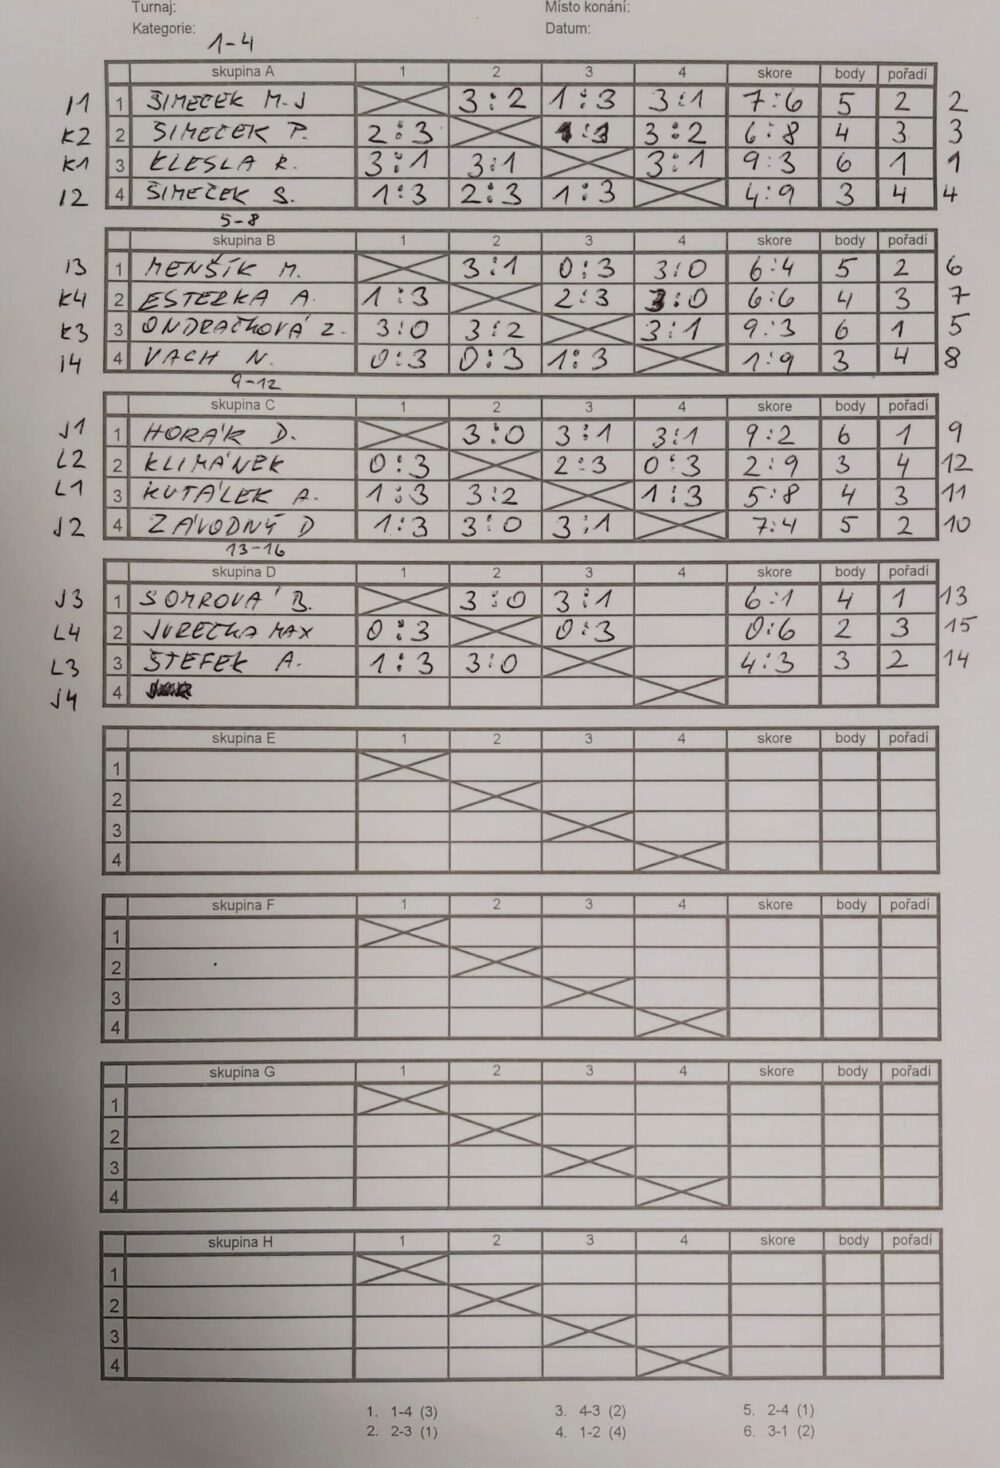 Turnaj: Místo konání:
Kategorie: Datum:
1-4
skupina A 1 2 3 4 skore body pořadí
I1 1 ŠIMEČEK M.J 3:2 1:3 3:1 7:6 5 2 2
K2 2 ŠIMEČEK P. 2:3 1:3 3:2 6:8 4 3 3
K1 3 KLESLA R. 3:1 3:1 3:1 9:3 6 1 1
I2 4 ŠIMEČEK S. 1:3 2:3 1:3 4:9 3 4 4
5-8
skupina B 1 2 3 4 skore body pořadí
I3 1 MENŠÍK M. 3:1 0:3 3:0 6:4 5 2 6
K4 2 ESTERKA A. 1:3 2:3 3:0 6:6 4 3 7
K3 3 ONDRAČKOVÁ Z. 3:0 3:2 3:1 9:3 6 1 5
I4 4 VACH N. 0:3 0:3 1:3 1:9 3 4 8
9-12
skupina C 1 2 3 4 skore body pořadí
J1 1 HORÁK D. 3:0 3:1 3:1 9:2 6 1 9
L2 2 KLIMÁNEK 0:3 2:3 0:3 2:9 3 4 12
L1 3 KUTÁLEK A. 1:3 3:2 1:3 5:8 4 3 11
J2 4 ZÁVODNÝ D 1:3 3:0 3:1 7:4 5 2 10
13-16
skupina D 1 2 3 4 skore body pořadí
J3 1 SOMROVÁ B. 3:0 3:1 6:1 4 1 13
L4 2 JUREČKA MAX 0:3 0:3 0:6 2 3 15
L3 3 ŠTEFEK A. 1:3 3:0 4:3 3 2 14
J4 4
skupina E 1 2 3 4 skore body pořadí
1
2
3
4
skupina F 1 2 3 4 skore body pořadí
1
2
3
4
skupina G 1 2 3 4 skore body pořadí
1
2
3
4
skupina H 1 2 3 4 skore body pořadí
1
2
3
4
1. 1-4 (3) 3. 4-3 (2) 5. 2-4 (1)
2. 2-3 (1) 4. 1-2 (4) 6. 3-1 (2)